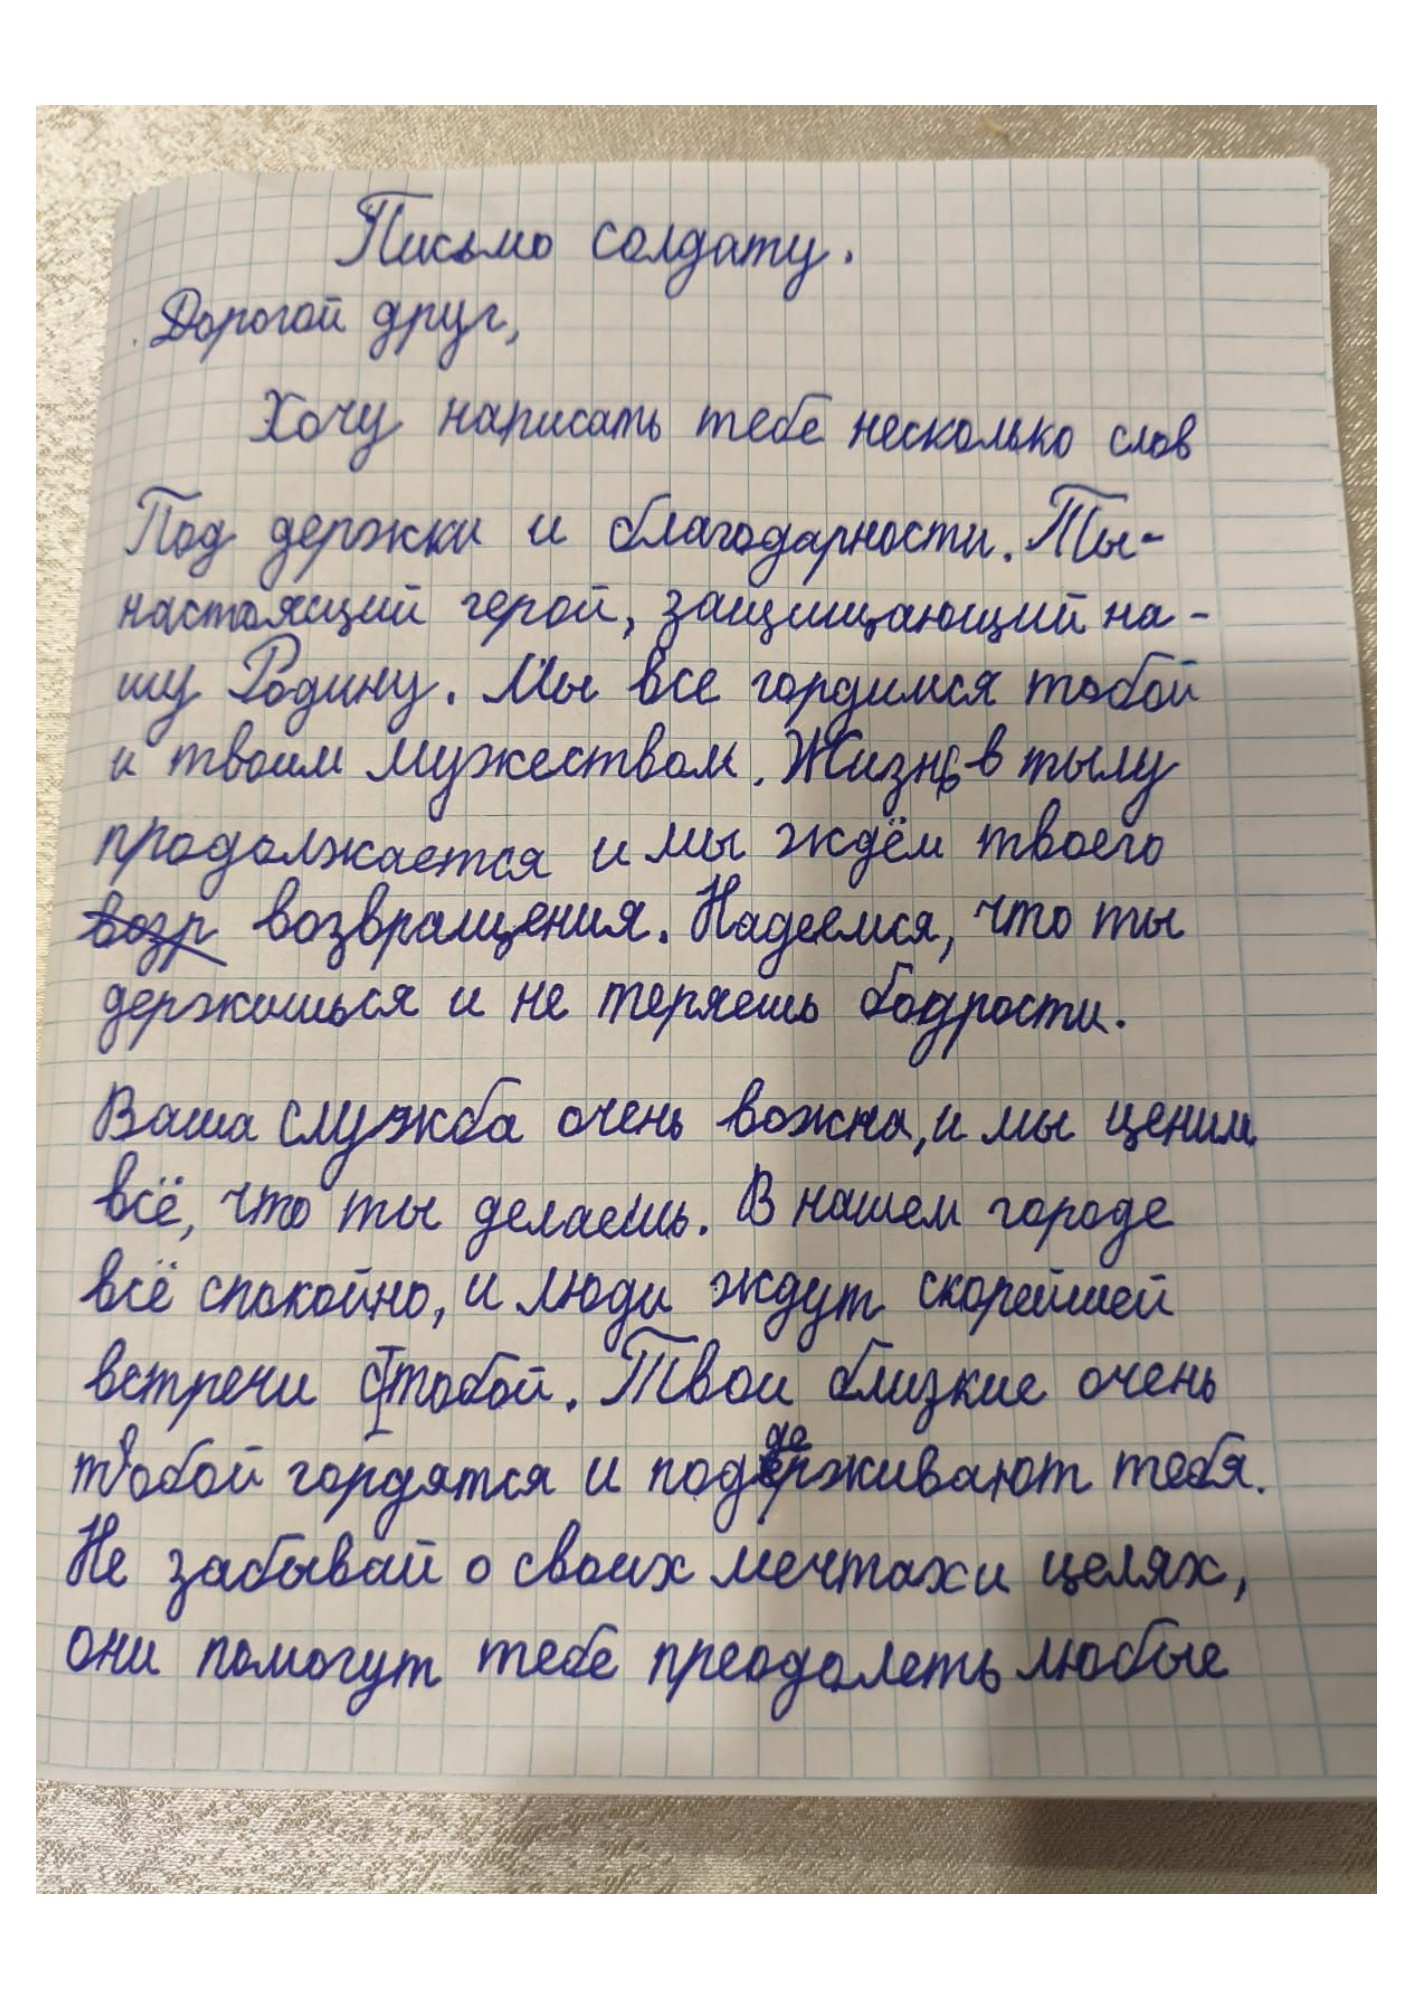 Письмо солдату.
Дорогой друг,
Хочу написать тебе несколько слов
Под держки и благодарности. Ты-
настоящий герой, защищающий на-
шу Родину. Мы все гордимся тобой
и твоим мужеством. Жизнь в тылу
продолжается и мы ждём твоего
возр возвращения. Надеемся, что ты
держишься и не теряешь бодрости.
Ваша служба очень важна, и мы ценим
всё, что ты делаешь. В нашем городе
всё спокойно, и люди ждут скорейшей
встречи с тобой. Твои близкие очень
тобой гордятся и поддерживают тебя.
Не забывай о своих мечтах и целях,
они помогут тебе преодолеть любые